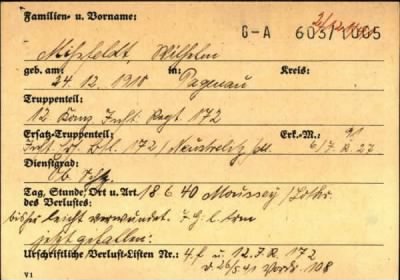 Familien- u. Vorname:
G-A 603/1005
Wilhelm
geb. am: in: Kreis:
24. 12. 1910 Pagenau
Truppenteil:
12 Komp. Inft. Regt. 172
Ersatz-Truppenteil: Erk.-M.:
Inft. Ers. Btl. 172 / Neustrelitz /M.
Dienstgrad:
Ob. Schtz.
Tag, Stunde, Ort u. Art 18 6 40 Moussey / Lothr.
des Verlustes:
bisher leicht verwundet. I. G. l. Arm
jetzt gefallen.
Urschriftliche Verlust-Listen Nr.: 4.f u. 12. I. R. 172
v. 26/5.41 108
V1